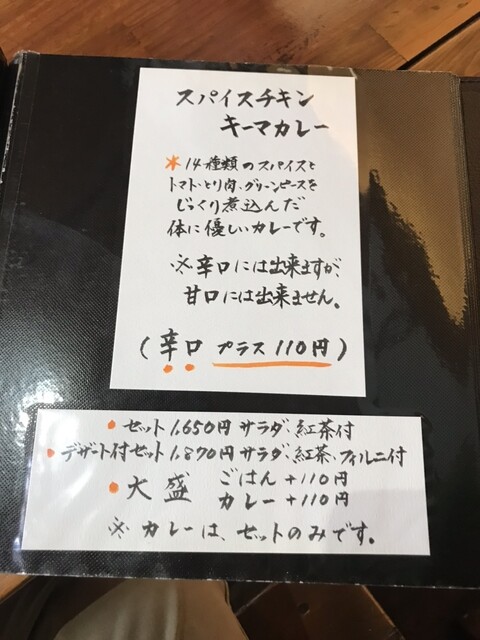 スパイスチキン
キーマカレー
＊14種類のスパイスと
トマト、とり肉、グリーンピースを
じっくり煮込んだ
体に優しいカレーです。
※辛口には出来ますが、
甘口には出来ません。
(辛口 プラス110円)
・セット1,650円 サラダ、紅茶付
・デザート付セット1,870円 サラダ、紅茶、フィルニ付
・大盛 ごはん+110円
カレー+110円
※カレーは、セットのみです。